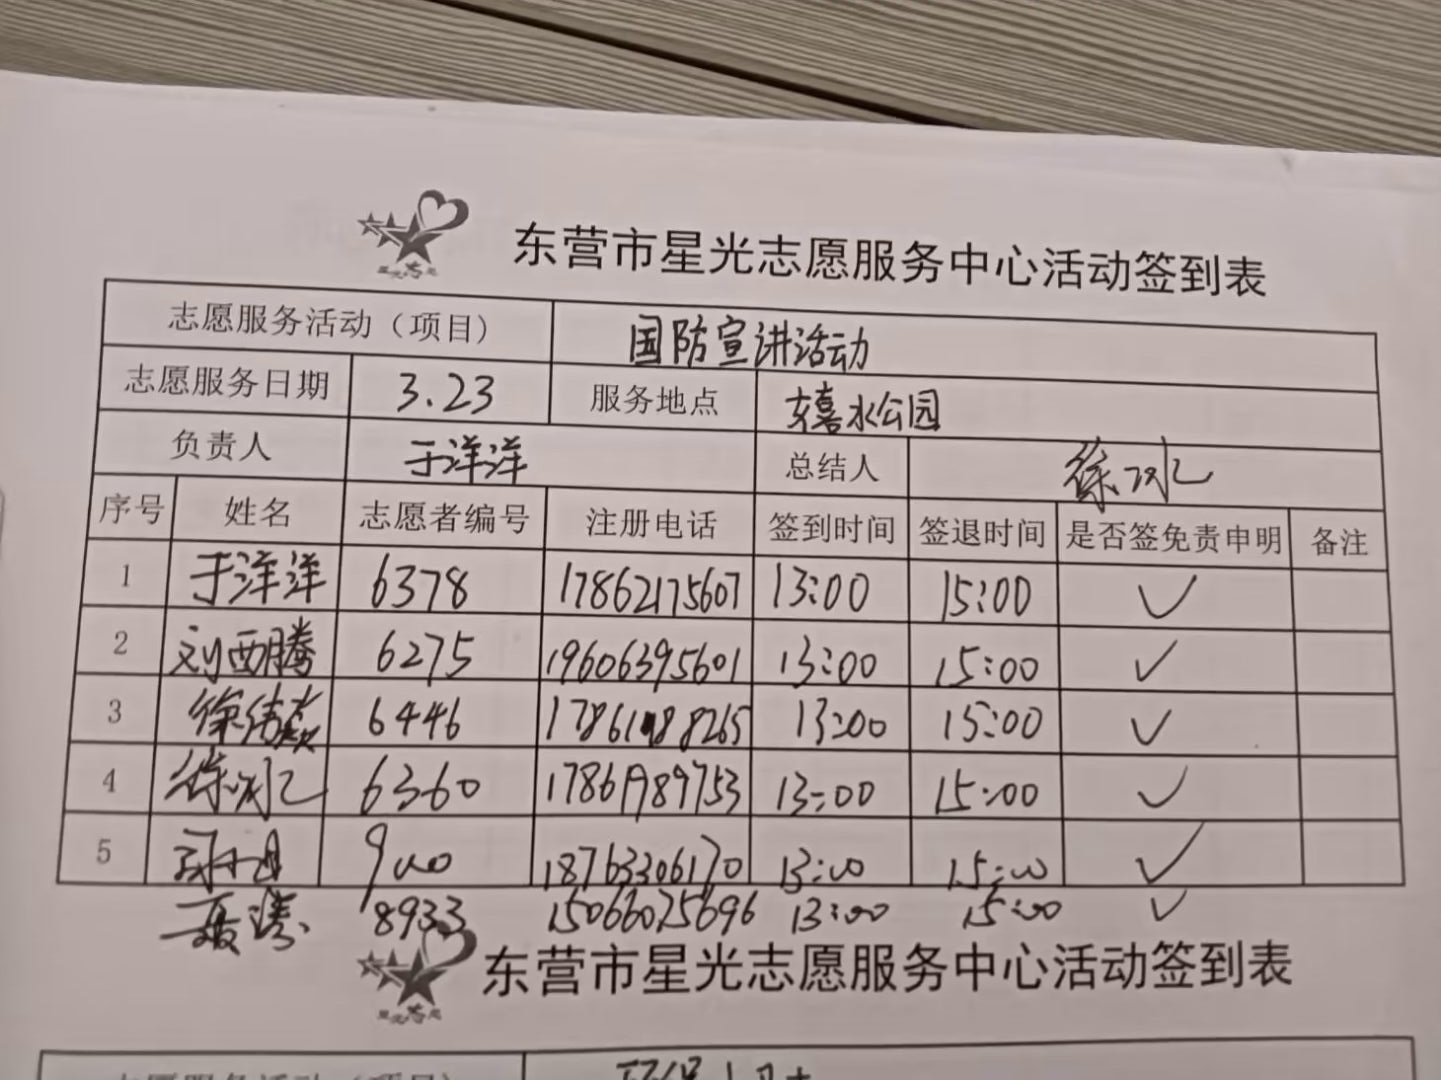 东营市星光志愿服务中心活动签到表
志愿服务活动（项目） 国防宣讲活动
志愿服务日期 3.23 服务地点 嬉水公园
负责人 于洋洋 总结人 徐冰忆
序号 姓名 志愿者编号 注册电话 签到时间 签退时间 是否签免责申明 备注
1 于洋洋 6378 17862175607 13:00 15:00 ✓
2 刘西腾 6275 19606395601 13:00 15:00 ✓
3 6446 13:00 15:00 ✓
4 6360 17861989753 13:00 15:00 ✓
5 900 18763306170 13:00 15:00 ✓
8933 15066025696 13:00 15:00 ✓
东营市星光志愿服务中心活动签到表